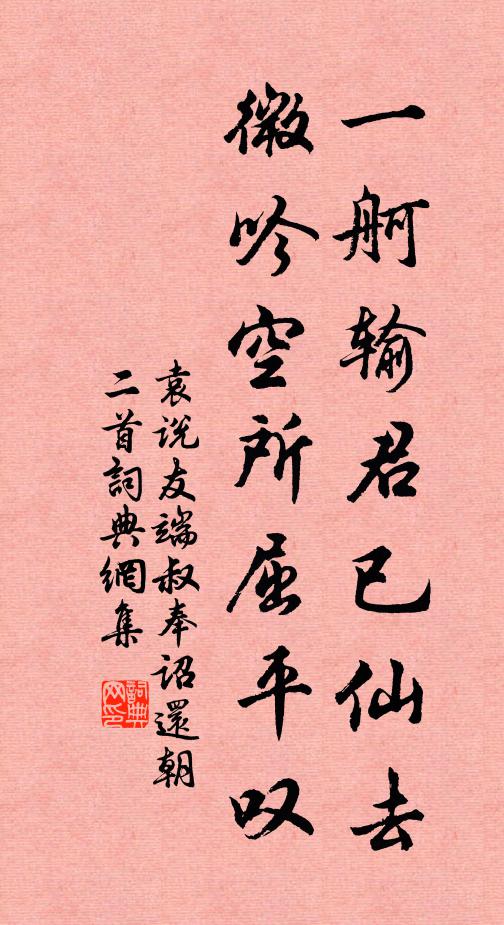 一舸输君已仙去
微吟空所屈平叹
袁说友端叔奉诏還朝
二首詞典網集
詞典
网印